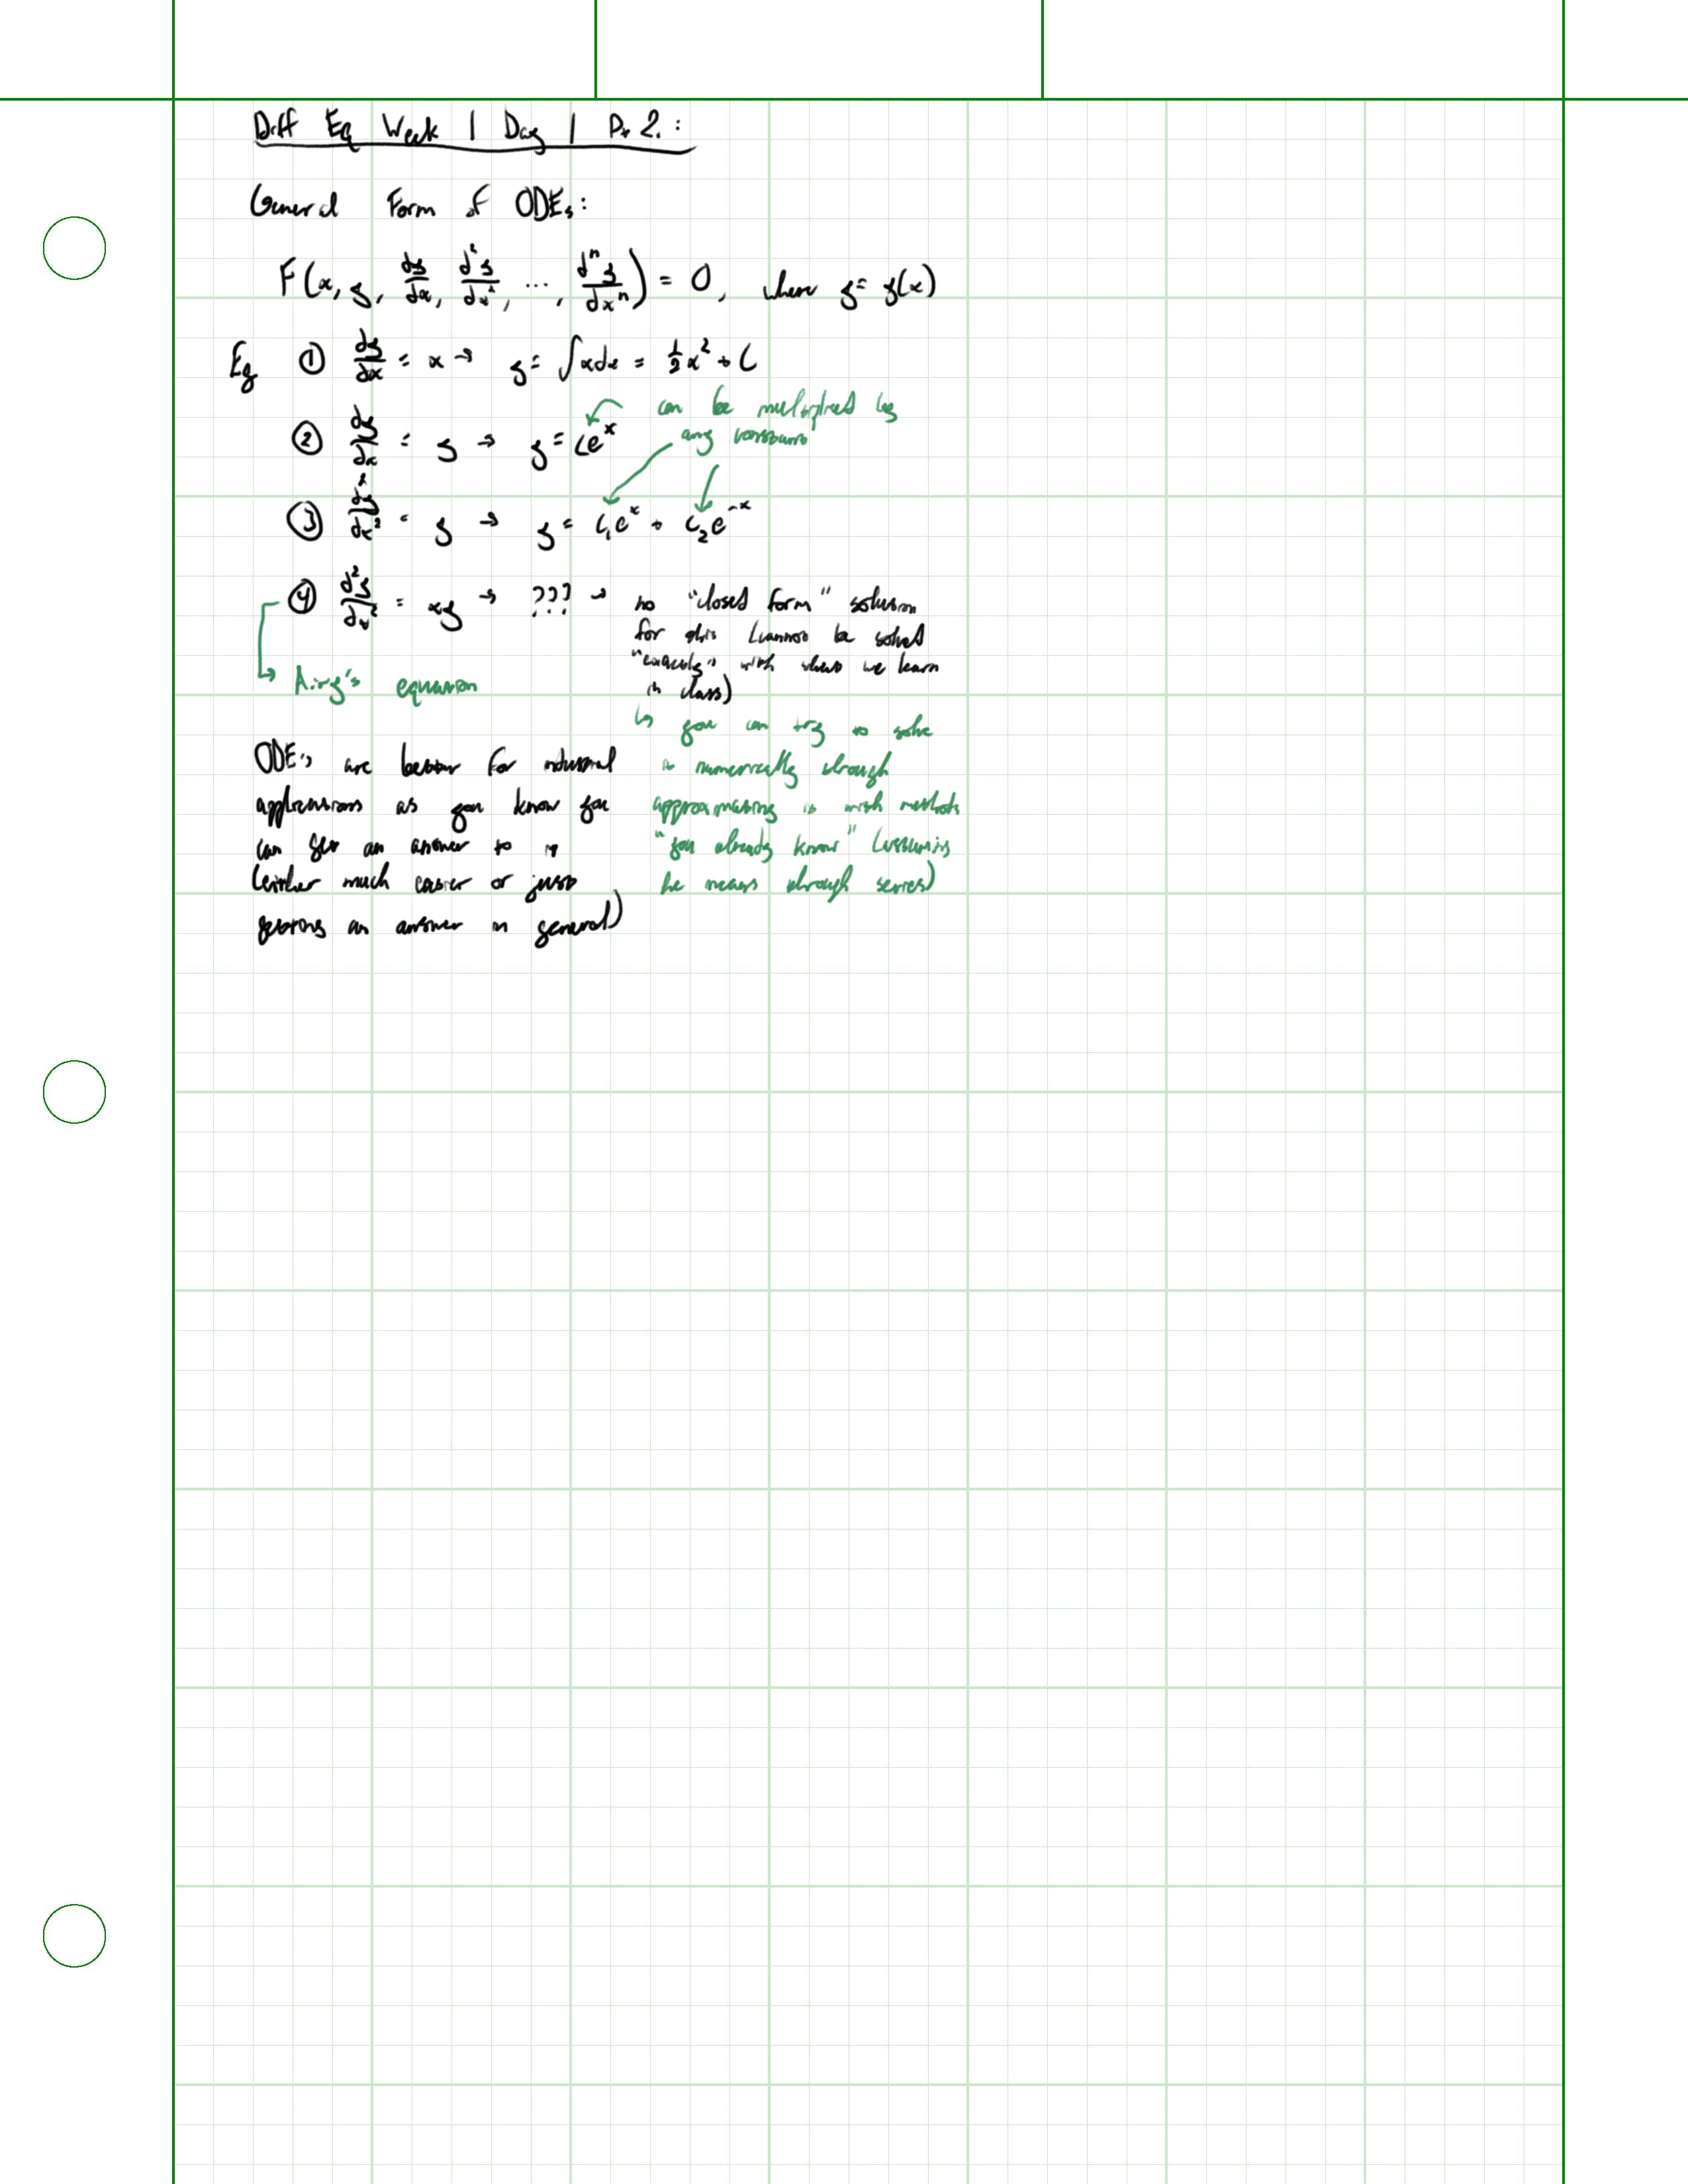 Diff Eq Week 1 Day 1 Pt 2.:
General Form of ODEs:
F(x, y, dy/dx, d²y/dx², ..., dⁿy/dxⁿ) = 0, where y = y(x)
Eg ① dy/dx = x → y = ∫xdx = 1/2 x² + C
can be multiplied by
② dy/dx = y → y = Ce^x
any constant
③ d²y/dx² = y → y = C₁e^x + C₂e^-x
④ d²y/dx² = xy → ??? → no "closed form" solution
for this (cannot be solved
"exactly" with what we learn
in class)
Airy's equation
↳ you can try to solve
it numerically through
approximating it with methods
"you already know" (assuming
he means through series)
ODE's are better for industrial
applications as you know you
can get an answer to it
(either much easier or just
getting an answer in general)